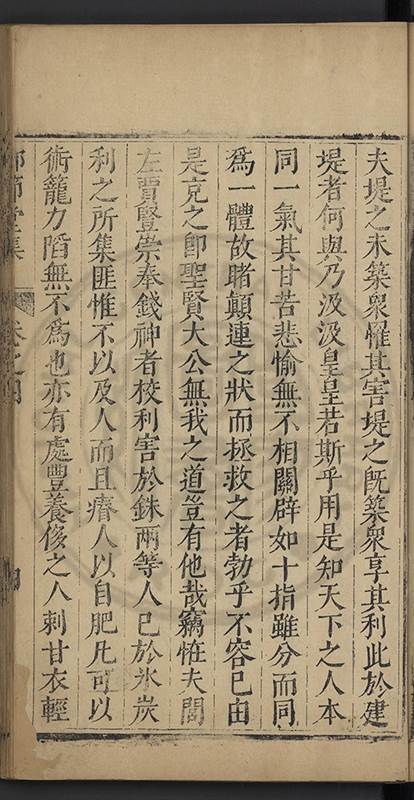 夫堤之未築衆懼其害堤之旣築衆享其利此於建
堤者何與乃汲汲皇皇若斯乎用是知天下之人本
同一氣其甘苦悲愉無不相關辟如十指雖分而同
爲一體故睹顛連之狀而拯救之者勃乎不容已由
是充之卽聖賢大公無我之道豈有他哉竊恠夫闒
左賈豎崇奉錢神者校利害於銖兩等人巳於氷炭
利之所集匪惟不以及人而且瘠人以自肥凡可以
術籠力䧟無不爲也亦有處豐養俊之人刺甘衣輕
節堂集
卷之四